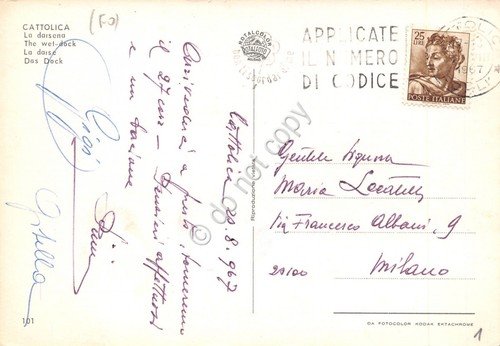 CATTOLICA
La darsena
The wet-dock
La darse
Das Dock
(FG)
ROTALCOLOR
ROTALFOTO
APPLICATE
IL NUMERO
DI CODICE
25
LIRE
POSTE ITALIANE
1967
Cattolica 20.8.967
Arrivederci a presto, torneremo
il 27 corr - Pensieri affettuosi
e un bacione
Giosi
Ornella
Gentile Signora
Maria Locatelli
Via Francesco Albani, 9
20100 Milano
Riproduzione vietata
do not copy
101
DA FOTOCOLOR KODAK EKTACHROME
1